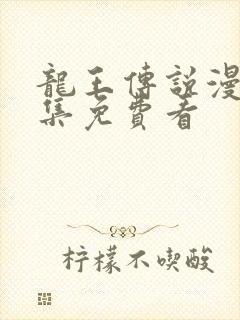 龍王傳說漫
集免費看
柠檬不喫酸